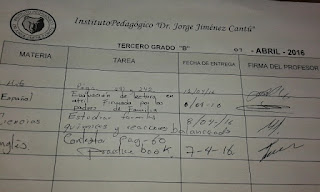 Instituto Pedagógico "Dr. Jorge Jiménez Cantú"
TERCERO GRADO "B" 07 - ABRIL - 2016
MATERIA TAREA FECHA DE ENTREGA FIRMA DEL PROFESOR
Pag. 241 a 242
Español Evaluación de lectora en
atril Firmada por los
padres de Familia
Ciencias Estudiar formula
químicas y balanceado 8/04/16
Inglés Contesta pag-60
book 7-4-16